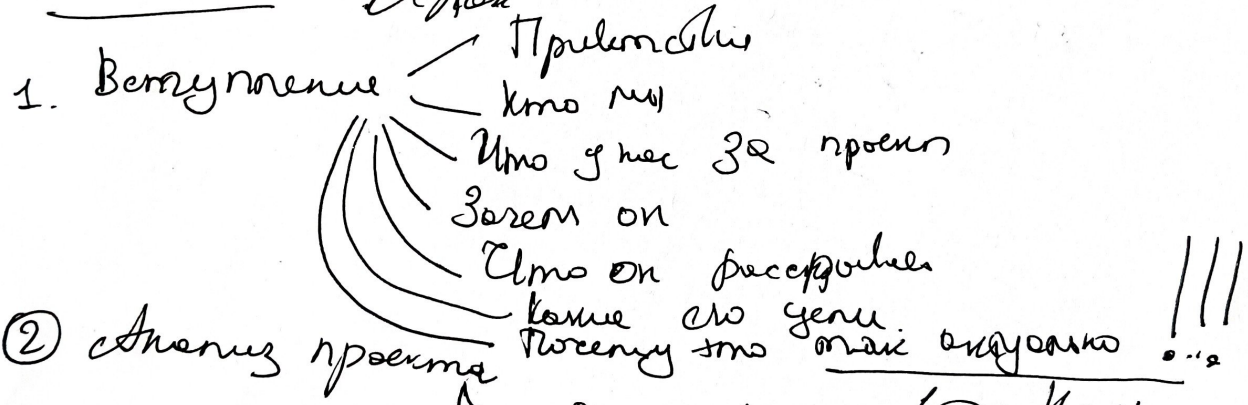 1. Вступление
Приветствие
кто мы
Что у нас за проект
Зачем он
Что он рассматривает
Какие его цели
Почему это так актуально !!!
② Анализ проекта